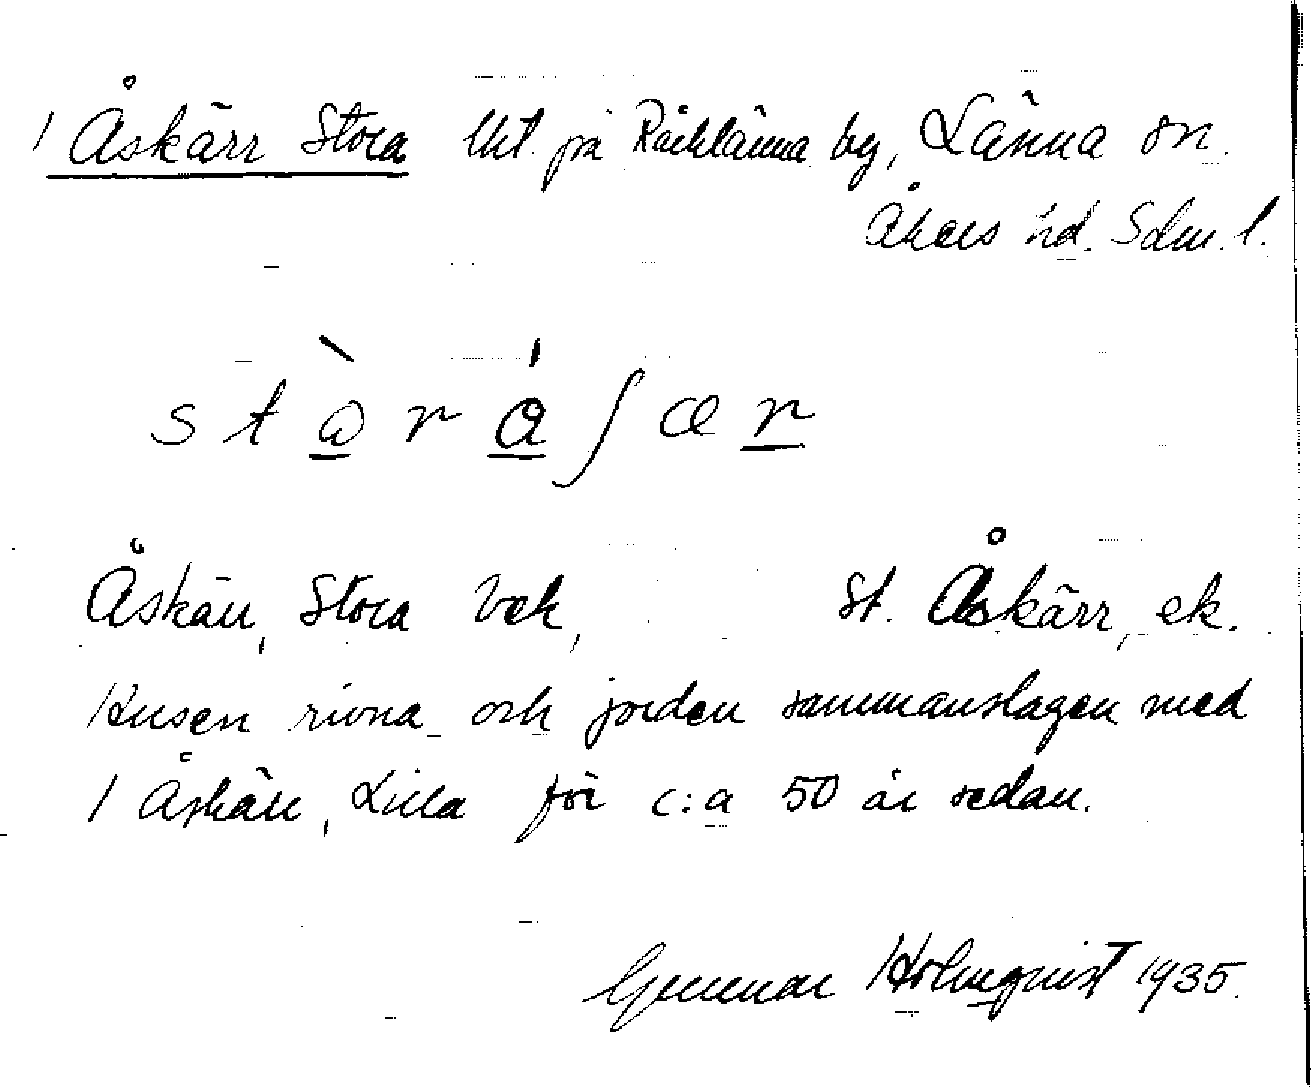 1 Åskärr Stora Utt. på Räcklänna by, Länna sn.
Åkers hd. Sdm. l.
s t ò̲ r á̲ ʃ æ r̲
Åskärr, Stora Vek, St. Åskärr, ek.
Husen rivna och jorden sammanslagen med
1 Åskärr, Lilla för c:a 50 år sedan.
Gunnar Holmquist 1935.